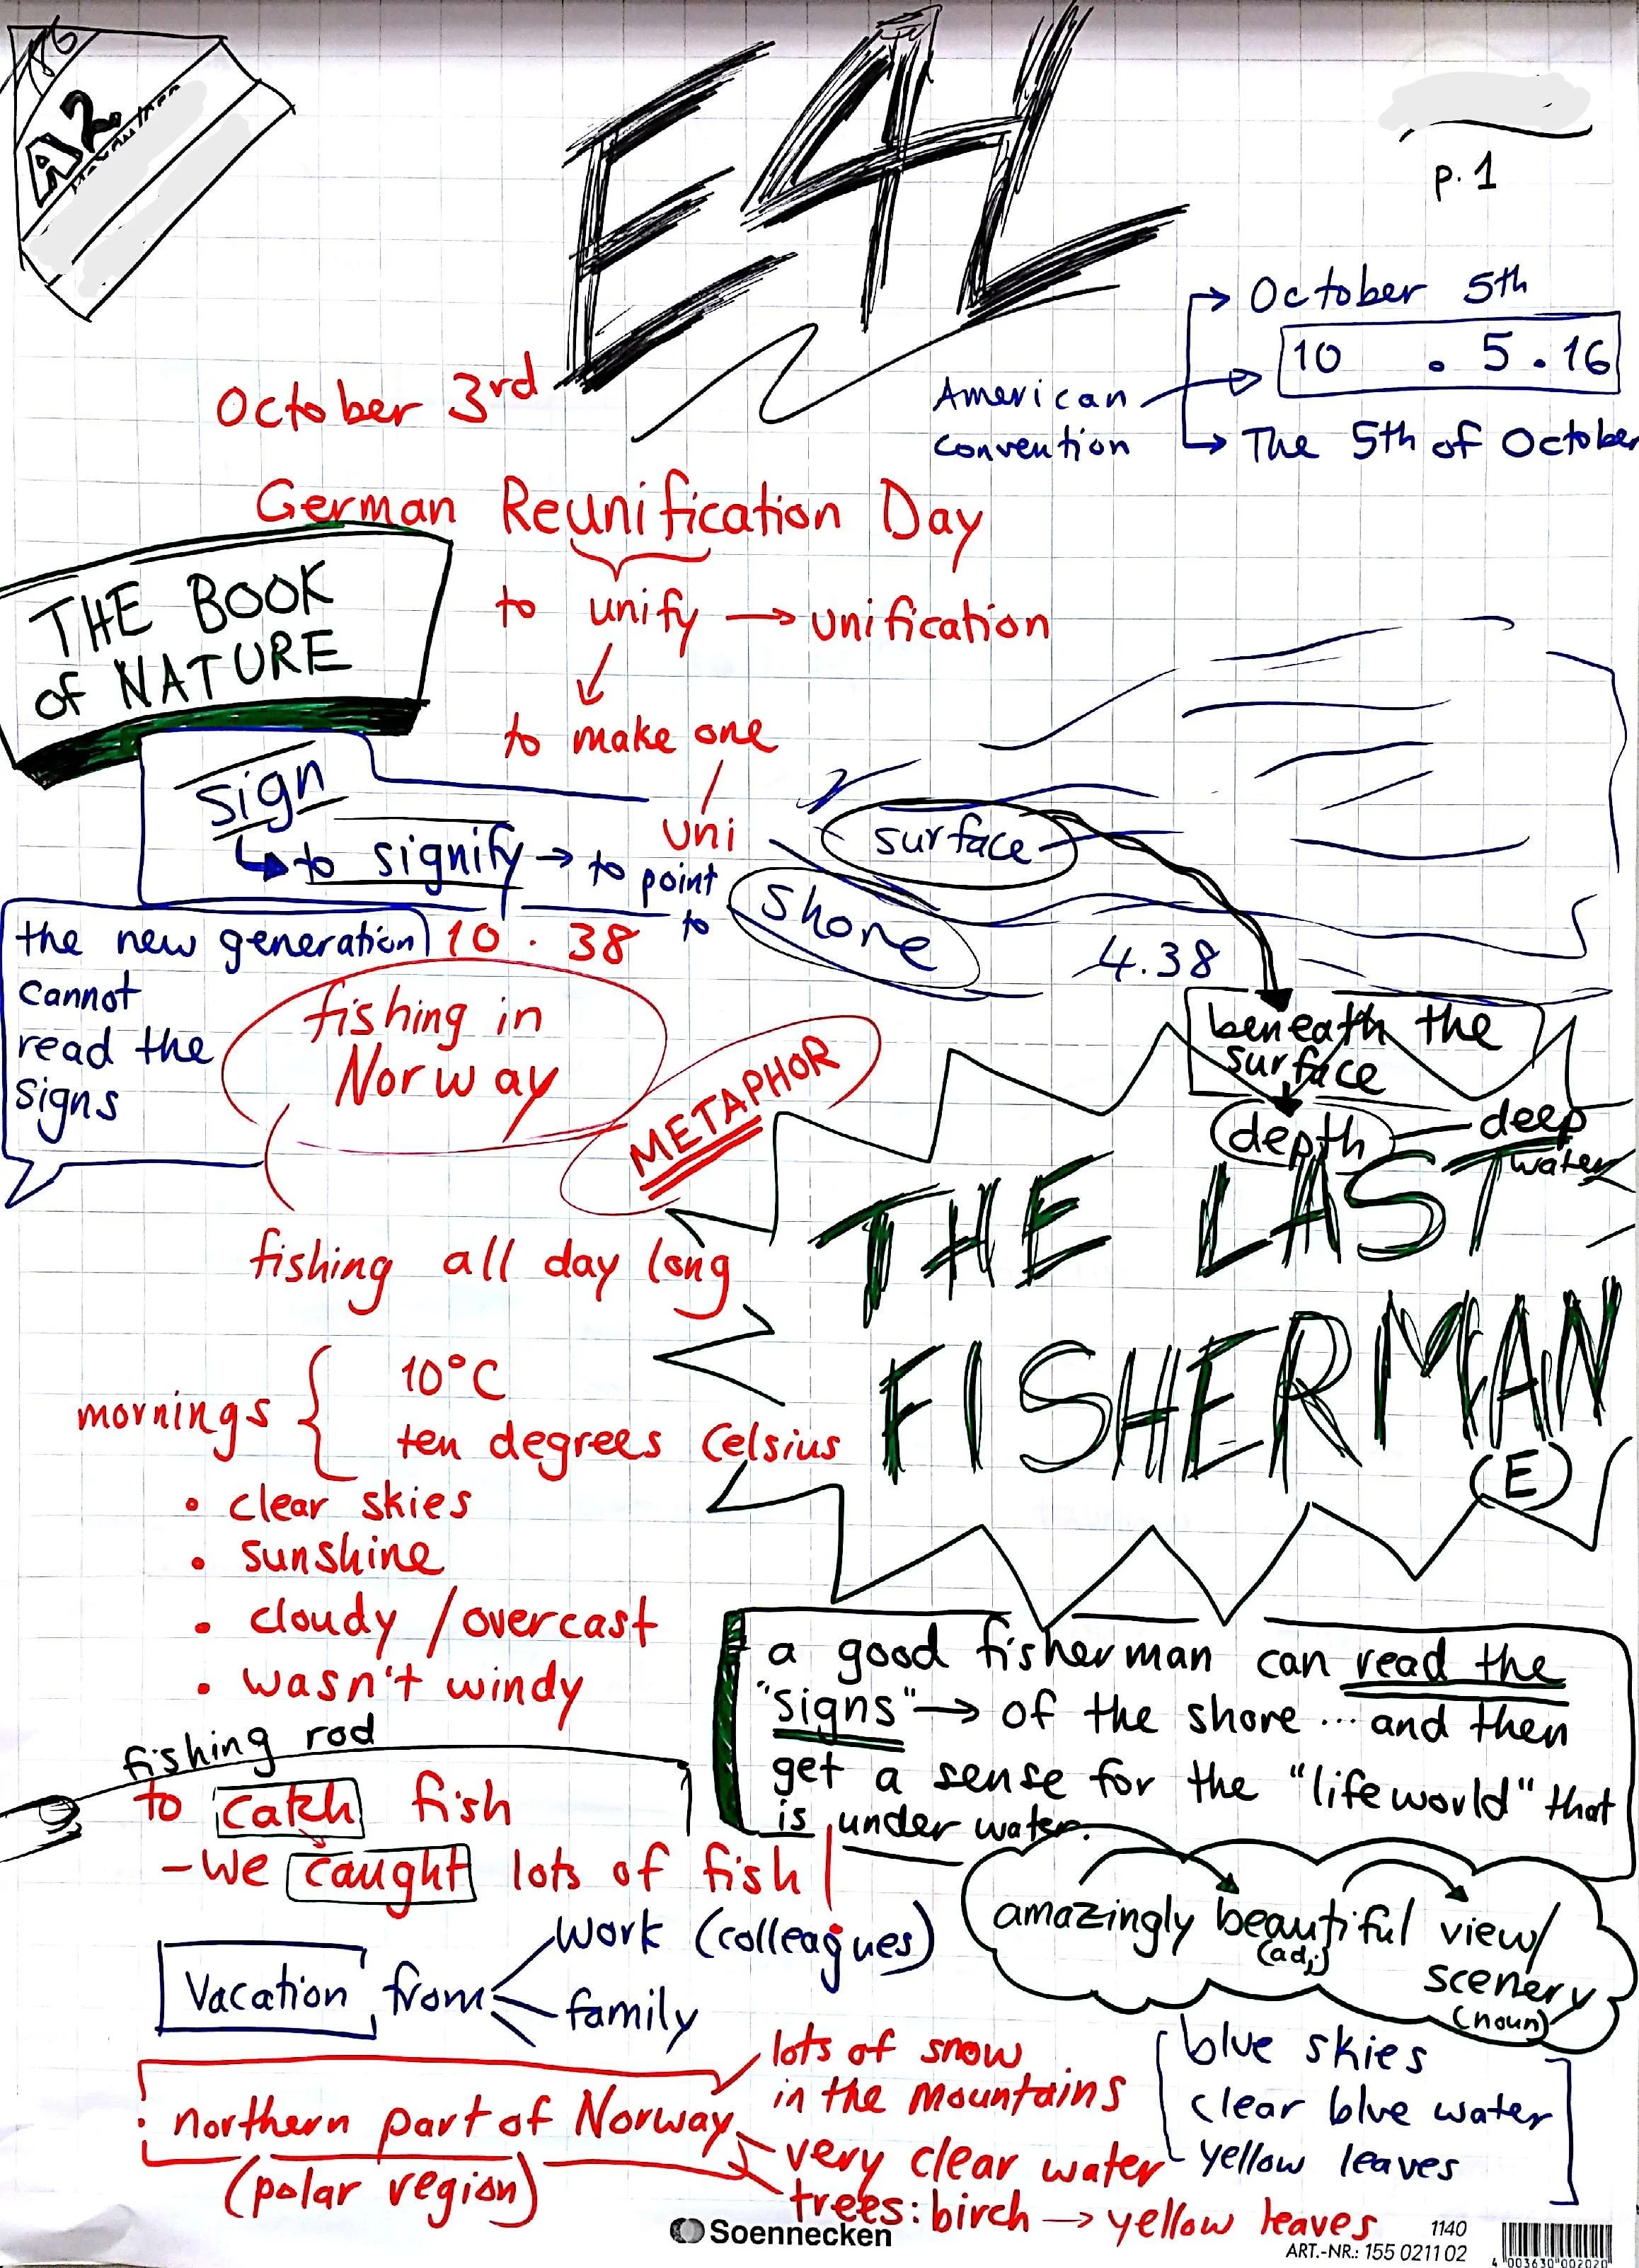 A2
E4L
p. 1
October 5th
10 . 5 . 16
American
convention
The 5th of October
October 3rd
German Reunification Day
to unify → unification
to make one
uni
THE BOOK
of NATURE
sign
to signify → to point
to
surface
shore
4.38
the new generation
cannot
read the
signs
10 . 38
fishing in
Norway
METAPHOR
beneath the
surface
depth
deep
water
THE LAST
FISHERMAN
(E)
fishing all day long
mornings {
10°C
ten degrees Celsius
• clear skies
• sunshine
• cloudy / overcast
• wasn't windy
a good fisherman can read the
"signs" → of the shore ... and then
get a sense for the "lifeworld" that
is under water.
fishing rod
to catch fish
- we caught lots of fish
amazingly beautiful view/
(adj)
scenery
(noun)
vacation from
work (colleagues)
family
northern part of Norway
(polar region)
lots of snow
in the mountains
very clear water
trees: birch → yellow leaves
blue skies
clear blue water
yellow leaves
Soennecken
1140
ART.-NR.: 155 0211 02
4 003630 002020